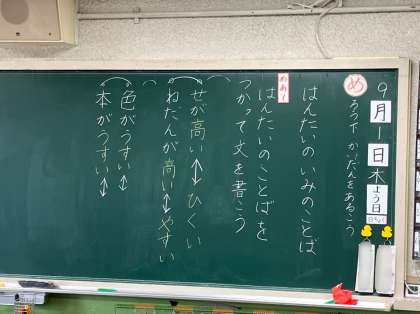 9月1日木よう日
日ちょく
め
ろう下・かいだんをあるこう
はんたいのいみのことば
めあて
はんたいのことばを
つかって文を書こう
せが高い↔ひくい
ねだんが高い↔やすい
色がうすい↔
本がうすい↔